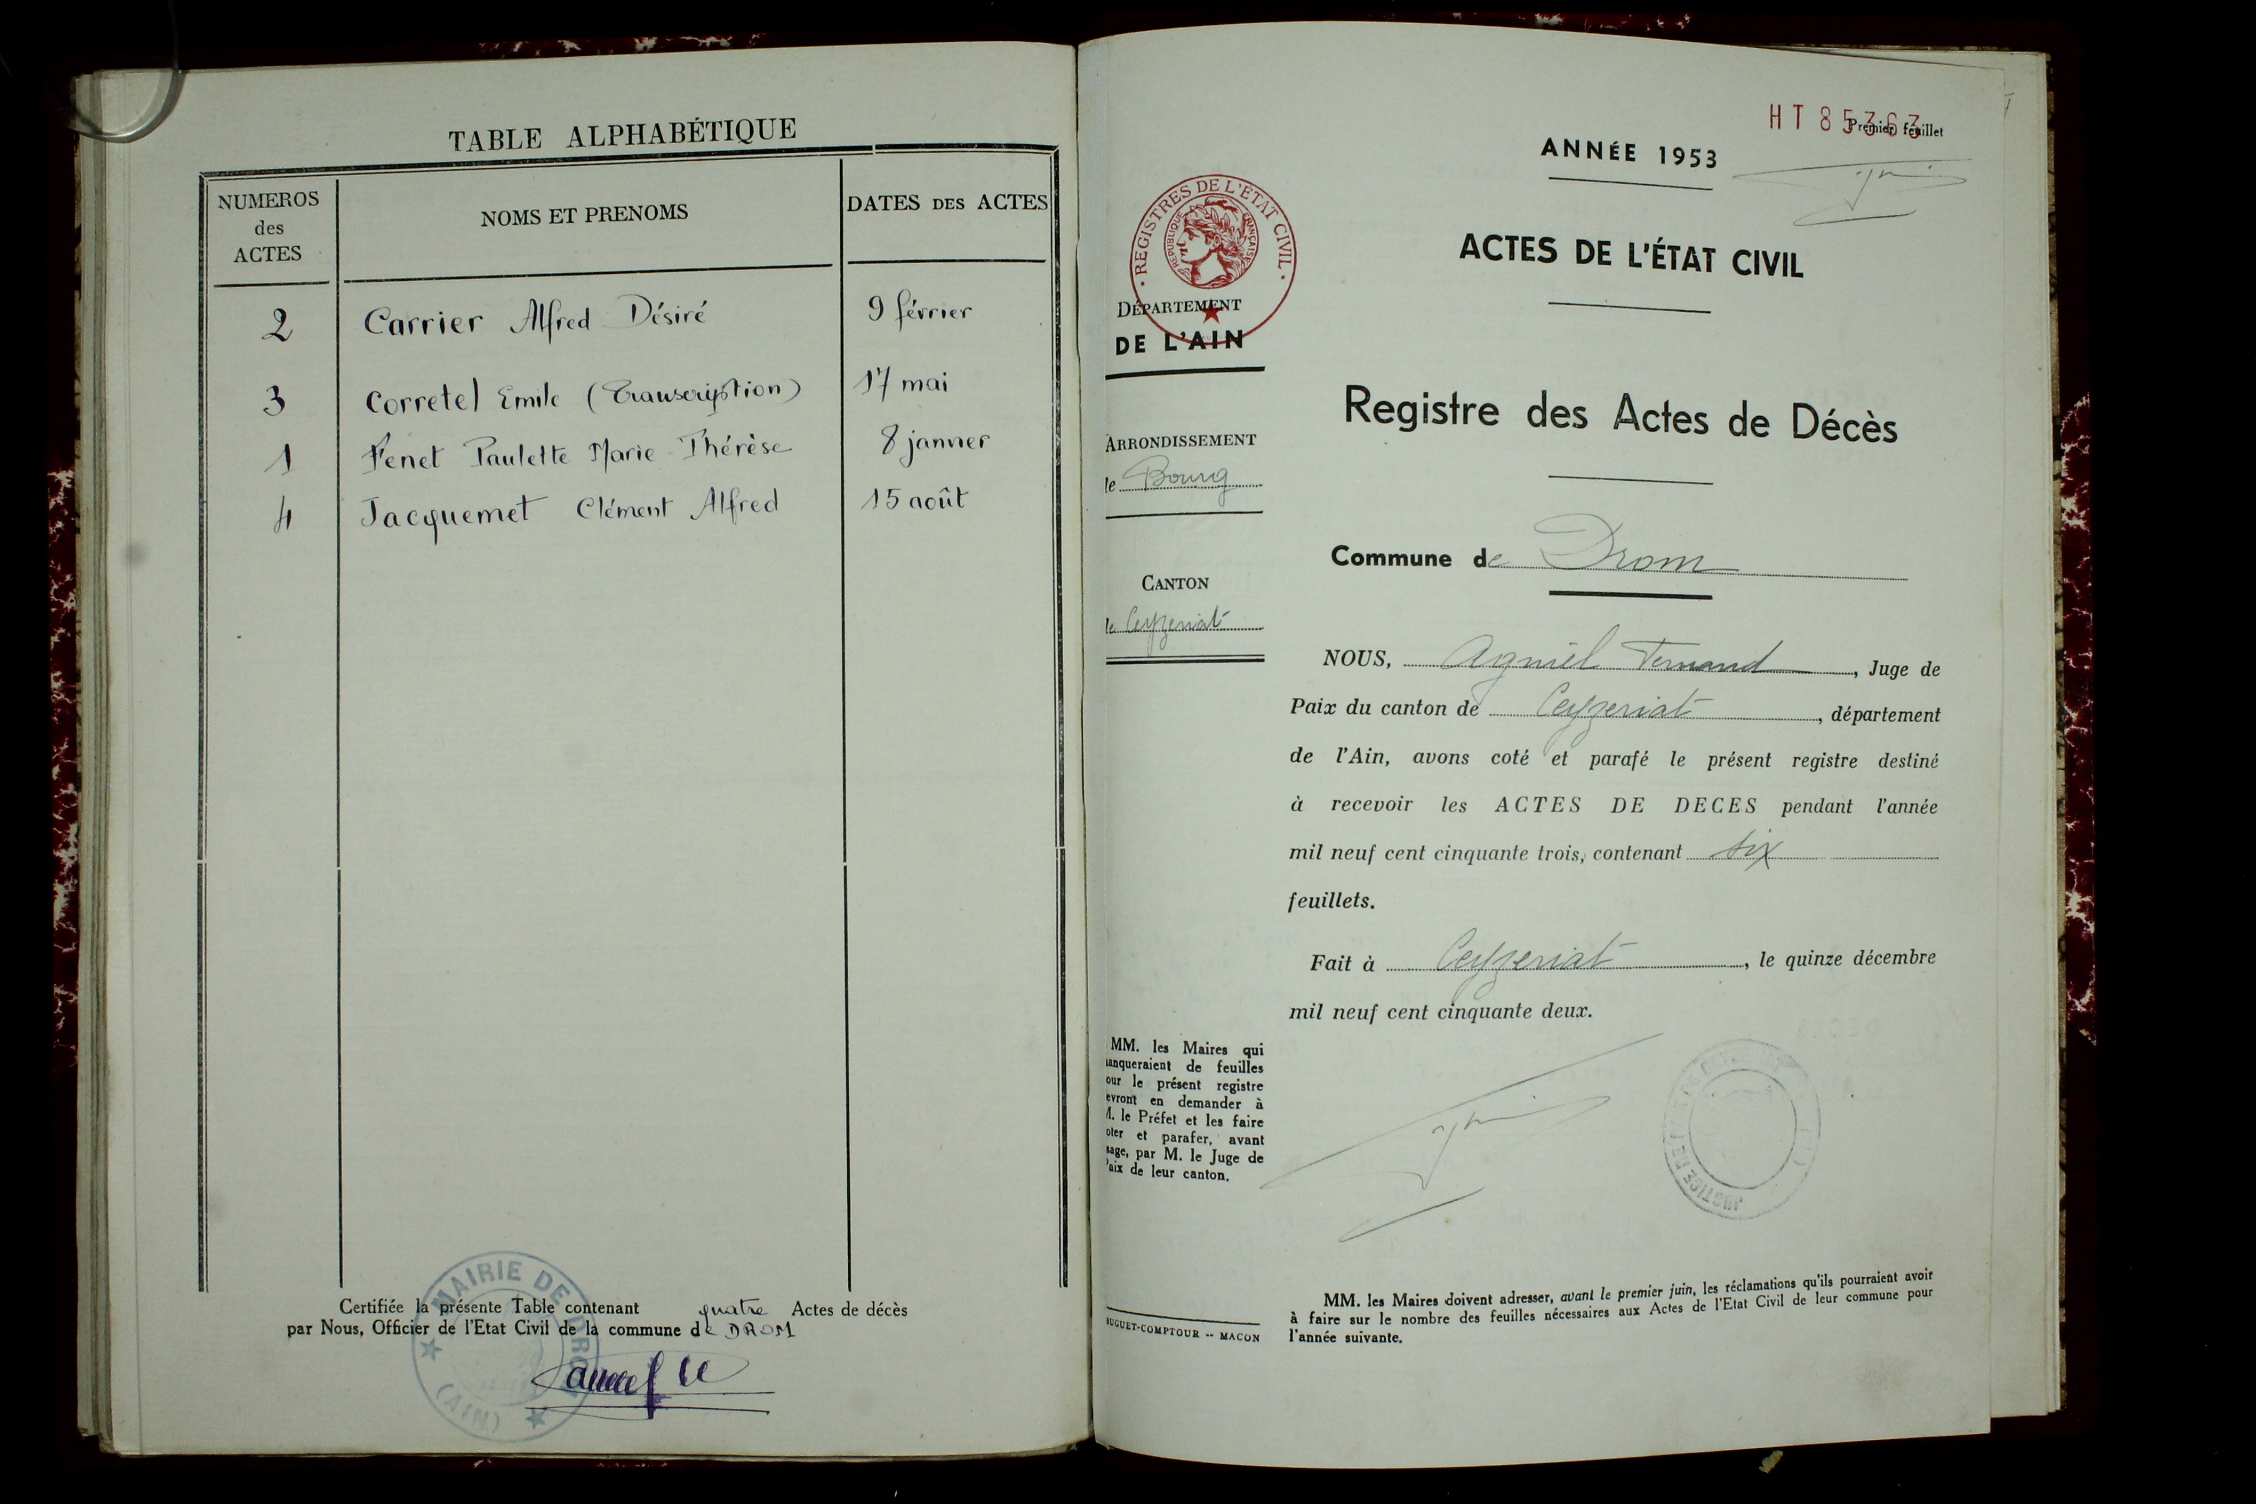 TABLE ALPHABÉTIQUE
NUMEROS des ACTES
NOMS ET PRENOMS
DATES DES ACTES
2 Carrier Alfred Désiré 9 février
3 Corretel Emile (Transcription) 17 mai
1 Fenet Paulette Marie Thérèse 8 janvier
4 Jacquemet Clément Alfred 15 août
Certifiée la présente Table contenant quatre Actes de décès
par Nous, Officier de l'Etat Civil de la commune de DROM
MAIRIE DE DROM
(AIN)
HT 85363
Premier feuillet
ANNÉE 1953
REGISTRES DE L'ETAT CIVIL
REPUBLIQUE FRANÇAISE
ACTES DE L'ÉTAT CIVIL
DÉPARTEMENT
DE L'AIN
Registre des Actes de Décès
ARRONDISSEMENT
le Bourg
Commune de Drom
CANTON
le Ceyzeriat
NOUS, Agniel Fernand, Juge de
Paix du canton de Ceyzeriat, département
de l'Ain, avons coté et parafé le présent registre destiné
à recevoir les ACTES DE DECES pendant l'année
mil neuf cent cinquante trois, contenant six
feuillets.
Fait à Ceyzeriat, le quinze décembre
mil neuf cent cinquante deux.
MM. les Maires qui
anqueraient de feuilles
our le présent registre
evront en demander à
M. le Préfet et les faire
oter et parafer, avant
sage, par M. le Juge de
Paix de leur canton.
JUSTICE DE
UGUET-COMPTOUR -- MACON
MM. les Maires doivent adresser, avant le premier juin, les réclamations qu'ils pourraient avoir
à faire sur le nombre des feuilles nécessaires aux Actes de l'Etat Civil de leur commune pour
l'année suivante.